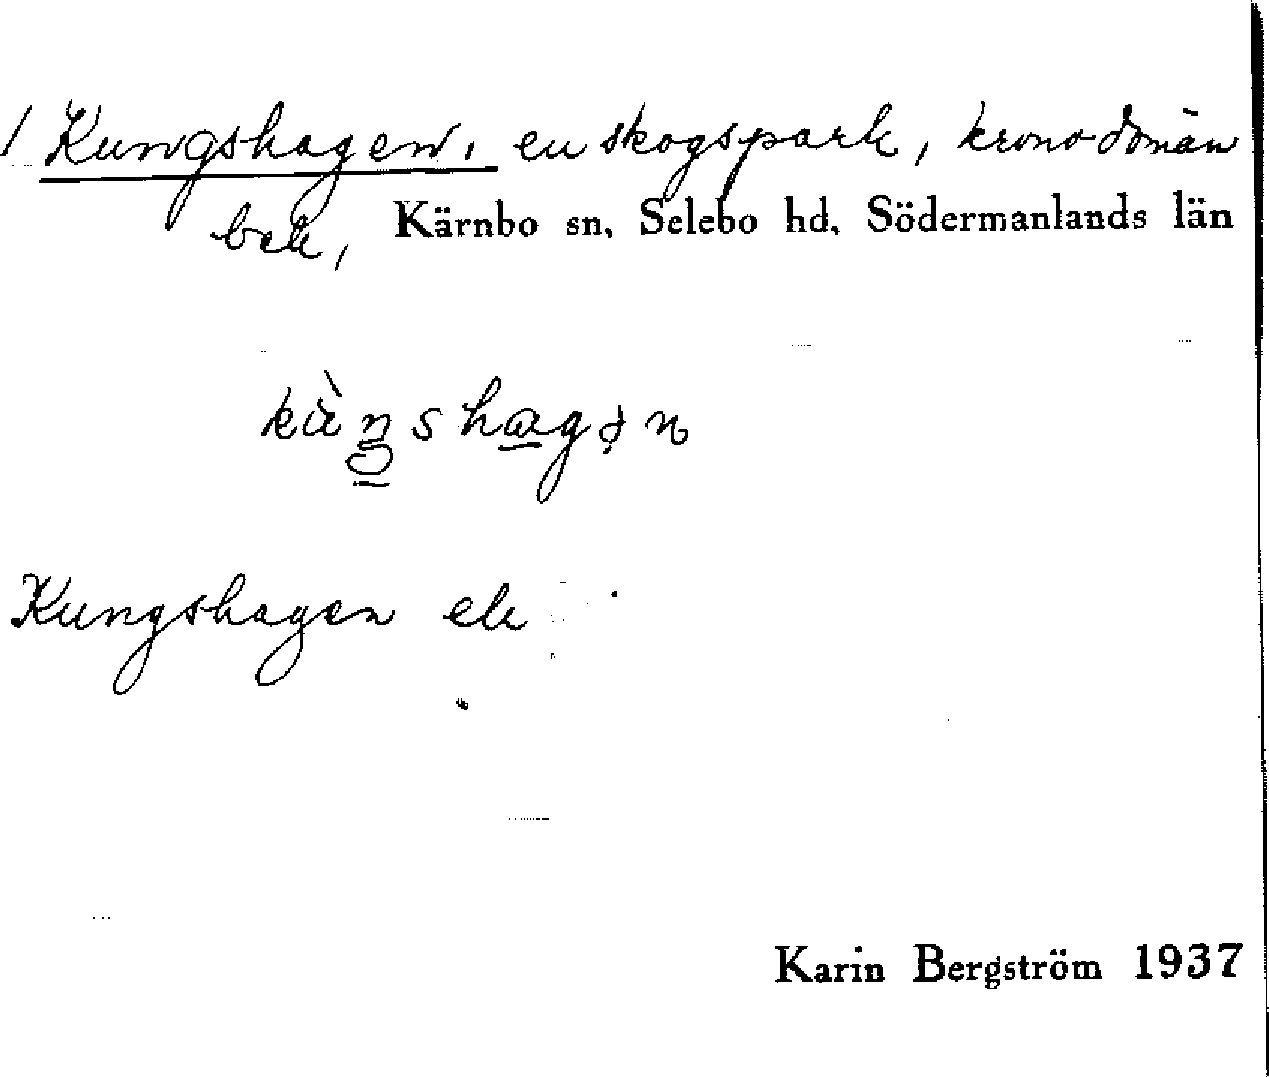 / Kungshagen, en skogspark, kronodomän
bek, Kärnbo sn, Selebo hd, Södermanlands län
Kungshagen ek
Karin Bergström 1937